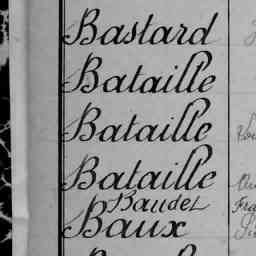 Bastard
Bataille
Bataille
Bataille
Baudet
Baux